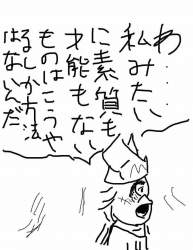 わ…
私みたい
に素質も
才能もない
ものはこうや
るしか方法
はないんだ